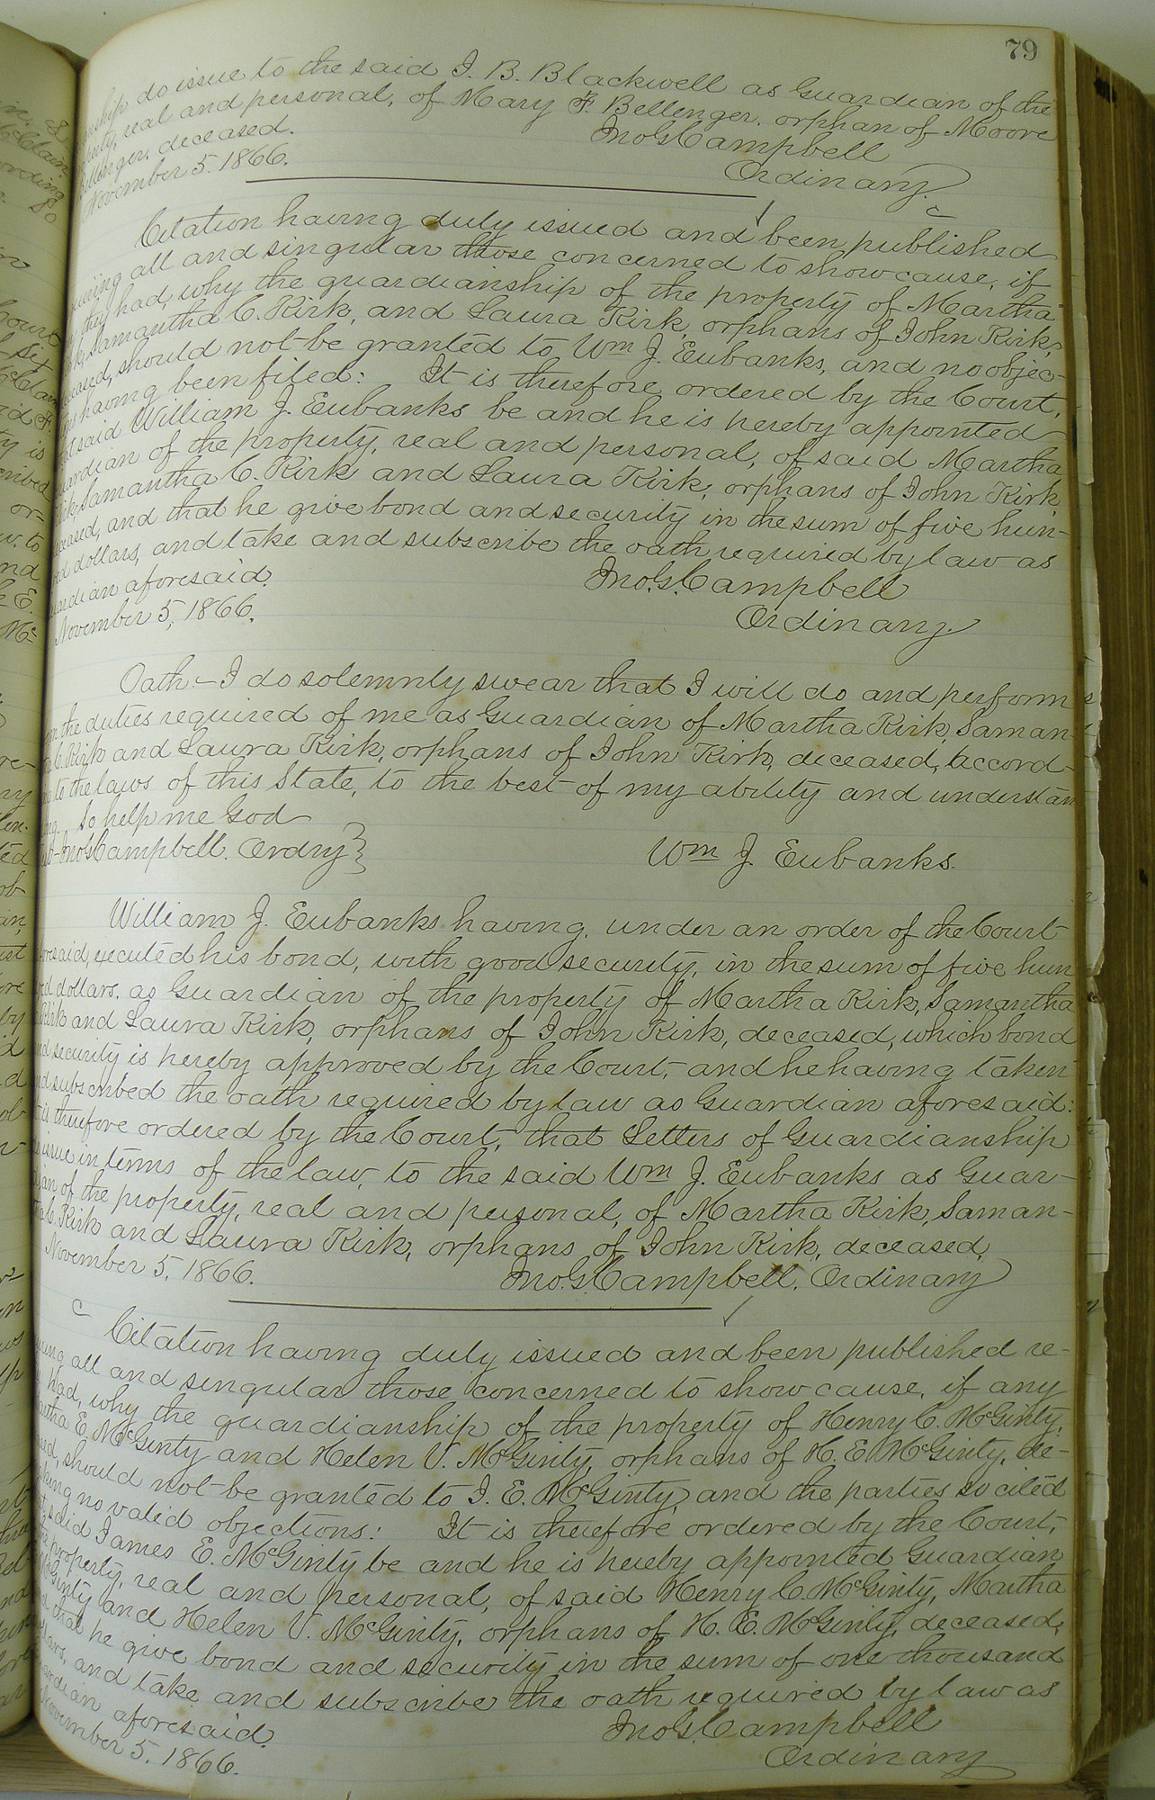 79
ship do issue to the said J. B. Blackwell as Guardian of the
real and personal, of Mary F. Bellenger, orphan of Moore
Bellenger, deceased. Jno. G. Campbell
November 5. 1866. Ordinary.
Citation having duly issued and been published
all and singular those concerned to show cause, if
they had, why the guardianship of the property of Martha
Samantha C. Kirk, and Laura Kirk, orphans of John Kirk,
should not be granted to Wm J. Eubanks, and no objec-
having been filed: It is therefore ordered by the Court,
said William J. Eubanks be and he is hereby appointed
of the property, real and personal, of said Martha
Samantha C. Kirk and Laura Kirk, orphans of John Kirk,
and that he give bond and security in the sum of five hun-
dollars, and take and subscribe the oath required by law as
aforesaid. Jno. G. Campbell
November 5, 1866. Ordinary.
Oath:- I do solemnly swear that I will do and perform
the duties required of me as Guardian of Martha Kirk, Saman-
C. Kirk and Laura Kirk, orphans of John Kirk, deceased, accord-
to the laws of this State, to the best of my ability and understan
So help me God
Jno G Campbell. Ordry } Wm J. Eubanks.
William J. Eubanks having, under an order of the Court
executed his bond, with good security, in the sum of five hun
dollars, as Guardian of the property of Martha Kirk, Samantha
and Laura Kirk, orphans of John Kirk, deceased, which bond
security is hereby approved by the Court, and he having taken
subscribed the oath required by law as Guardian aforesaid:
therefore ordered by the Court, that Letters of Guardianship
issue in terms of the law, to the said Wm J. Eubanks as Guar-
of the property, real and personal, of Martha Kirk, Saman-
C. Kirk and Laura Kirk, orphans of John Kirk, deceased,
November 5, 1866. Jno. G. Campbell, Ordinary
Citation having duly issued and been published re-
all and singular those concerned to show cause, if any
had, why the guardianship of the property of Henry C. McGinty,
E. McGinty and Helen V. McGinty, orphans of H. E. McGinty, de-
should not be granted to J. E. McGinty, and the parties so cited
no valid objections: It is therefore ordered by the Court,
said James E. McGinty be and he is hereby appointed Guardian
property, real and personal, of said Henry C. McGinty, Martha
McGinty and Helen V. McGinty, orphans of H. E. McGinty, deceased,
that he give bond and security in the sum of one thousand
and take and subscribe the oath required by law as
aforesaid. Jno. G. Campbell
November 5. 1866. Ordinary